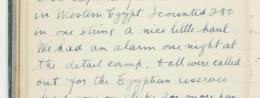 in Western Egypt I counted 200
in one string A nice little haul
We had an alarm one night at
the detail camp. & all were called
out for the Egyptian reserves
for more than